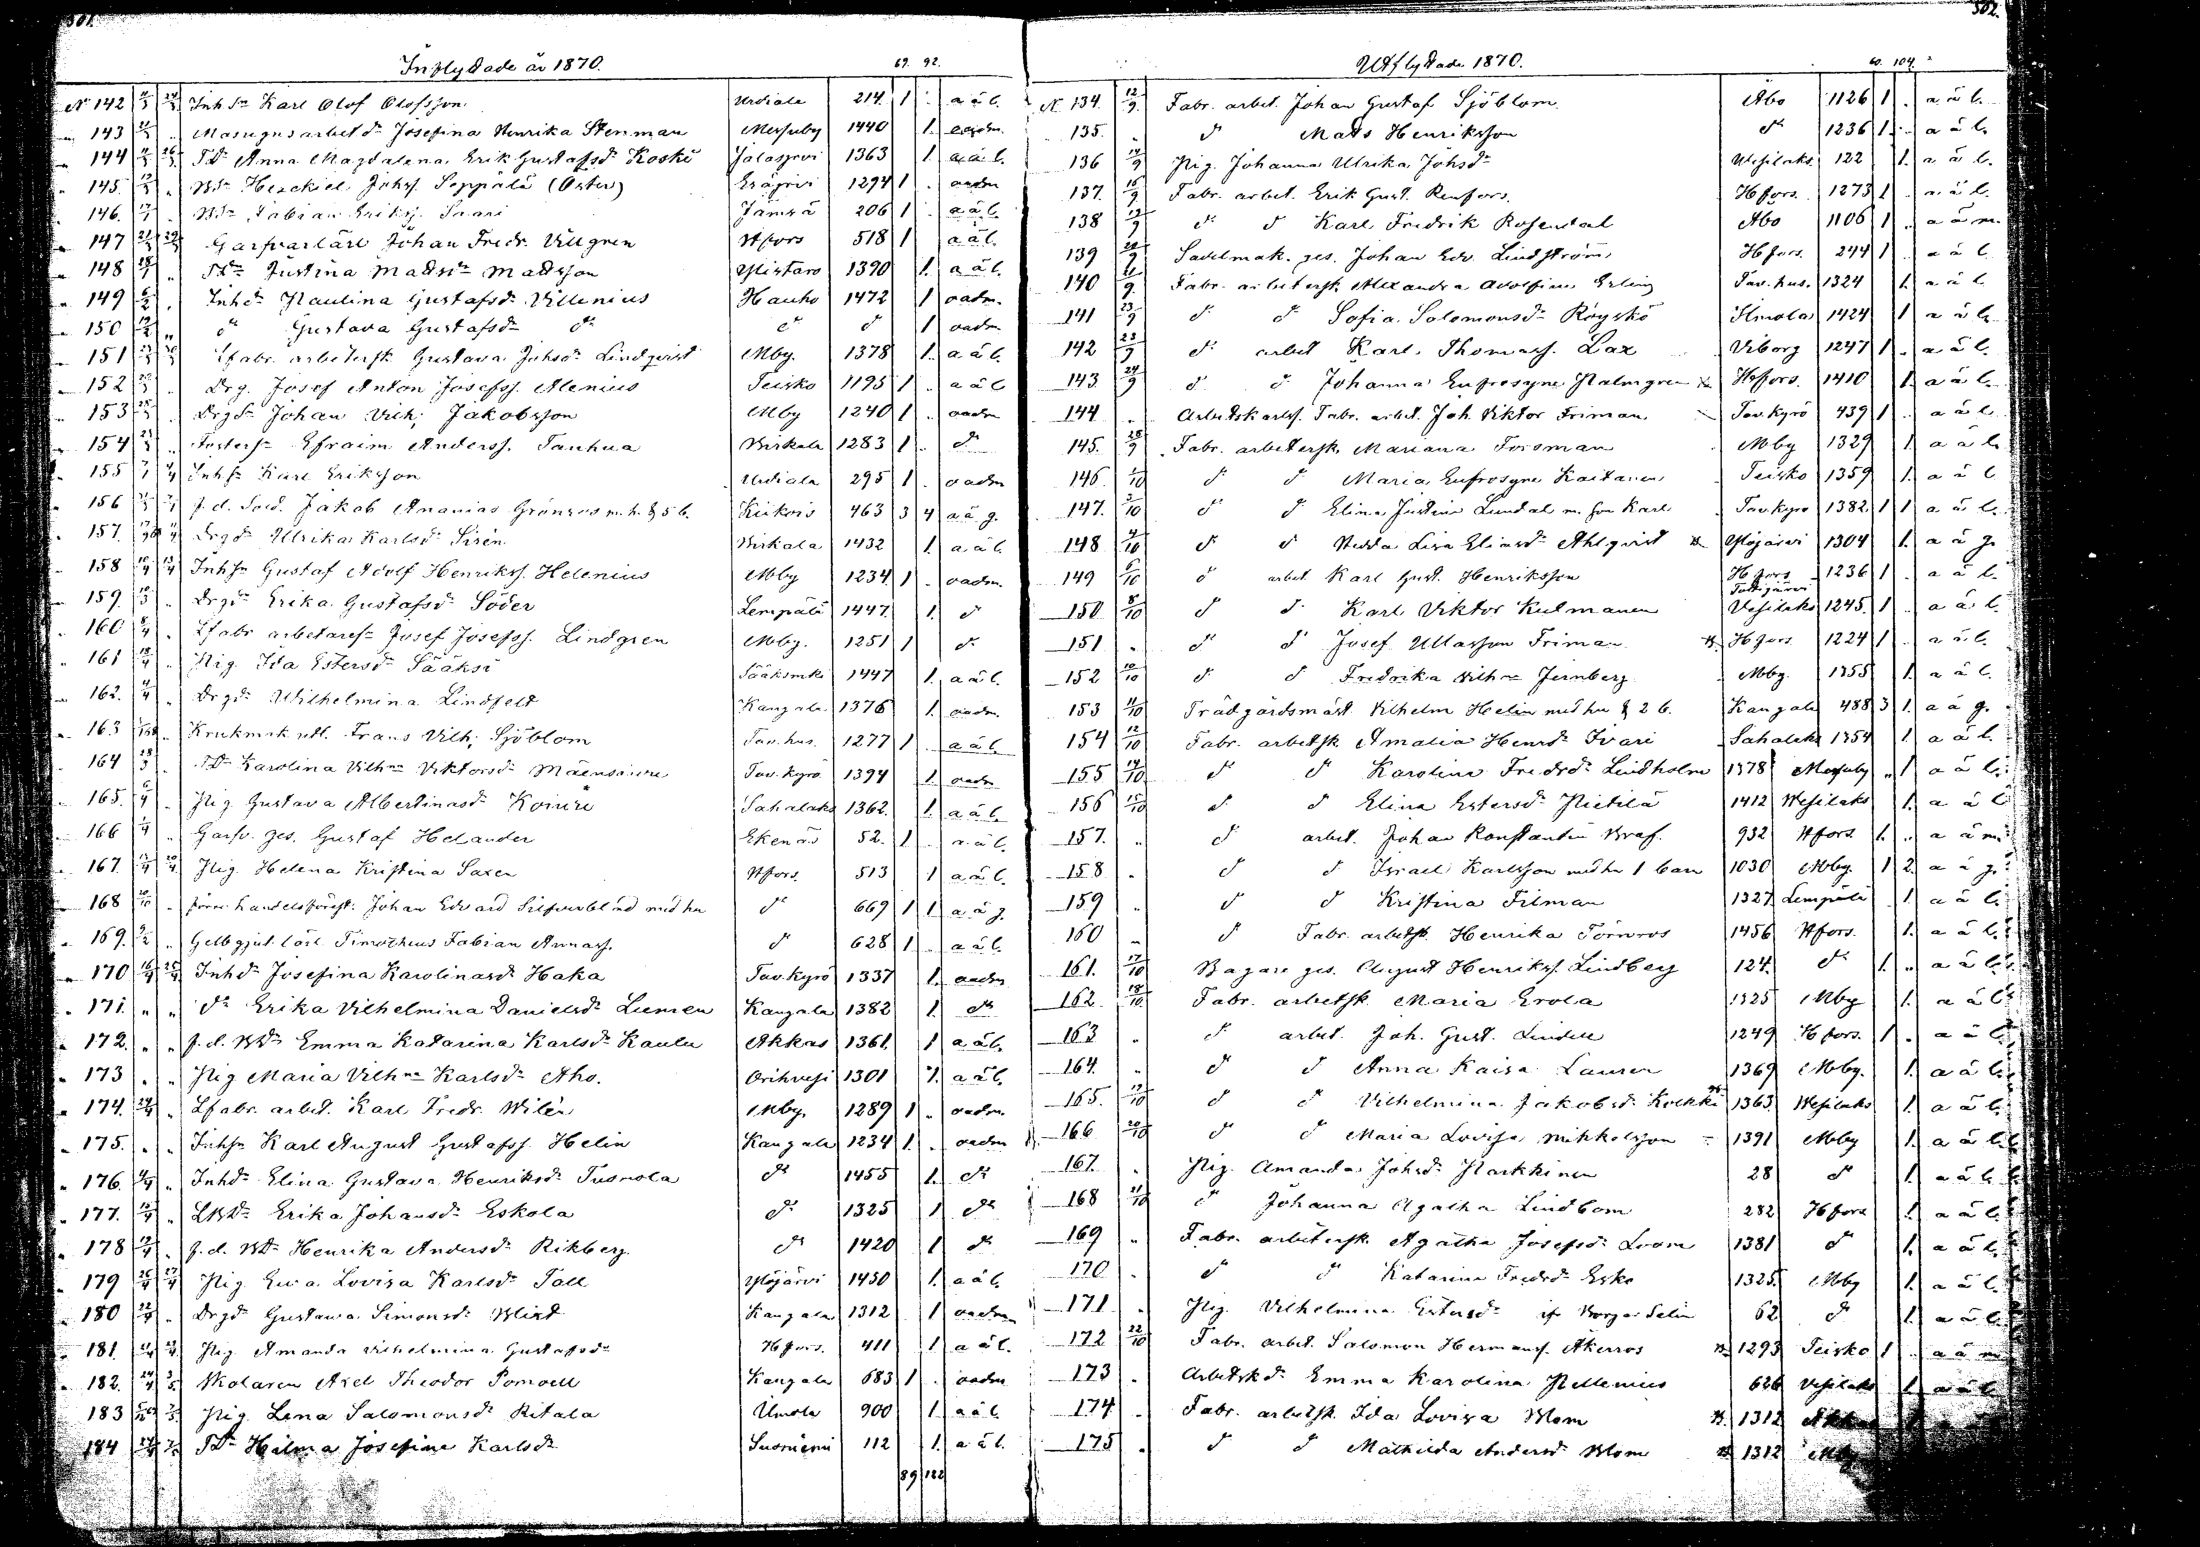 301.
Inflyttade år 1870.
69. 92.
N 142 Inhsn Karl Olof Olofsson Urdiala 214. 1 . a ä l.
143 Masugnsarbetdr Josefina Henrika Stenman Messuby 1440 1.
144 Tdr Anna Magdalena Erik Gustafsdr Koski Jalasjervi 1363 1 a ä l.
145. Hezekiel Johss. Seppälä (Öster) Eräjervi 1294 1 . oadm
146. Fabian Eriks. Saari Jämsä 206 1 . a ä l.
147 Garfvarlärl Johan Fredr. Villgren Hfors 518 1 a ä l.
148 Justina Matsdr Matsson Ylistaro 1390 1. a ä l.
149 Inhdr Paulina Gustafsdr Villenius Hauho 1472 1 oadm.
150 dr Gustava Gustafsdr dr dr dr 1 oadm
151 Lfabr. arbetersk Gustava Johsdr Lindqvist Mby. 1378 1. a ä l.
152 Drg. Josef Anton Josefss. Alenius Teisko 1195 1 . a ä l
153 Drgsn Johan Vilh; Jakobsson Mby 1240 1 . oadm
154 Fostersn Efraim Anderss. Tanhua Birkala 1283 1 . dr
155 Inhsn Karl Eriksson Urdiala 295 1 oadm
156 f.d. Sold. Jakob Ananias Grönroos m.h. & 5 b. Kiikois 463 3 4 a ä g.
157. Drgdr Ulrika Karlsdr Sirén Birkala 1432 1. a ä l.
158 Inhsn Gustaf Adolf Henrikss. Helenius Mby 1234 1 . oadm.
159. Drgdr Erika Gustafsdr Söder Lempälä 1447. 1. dr
160 Lfabr arbetaresn Josef Josefss. Lindgren Mby. 1251 1 dr
161 Pig. Ida Estersdr Sääksi Sääksmki 1447 1. a ä l.
162. Drgdr Wilhelmina Lindfelt Kangala 1376 1. oadm.
163 Krukmak utl. Frans Vilh; Sjöblom Tav.hus. 1277 1 a ä l.
164 Tdr Karolina Vilhna Viktorsdr Tav.kyrö 1394 1. oadm
165. Pig Gustava Albertinasdr Sahalaks 1362. 1. a ä l.
166 Garfv. ges. Gustaf Helander Ekenäs 52. 1 a ä l.
167. Pig. Helena Kristina Saxen Hfors. 513 1 a ä l.
168 förre handelsförest. Johan Edvard Silfverblad med hu dr 669 1 1 a ä g.
169. Gelbgjut. lärl Timotheus Fabian Annass. dr 628 1 a ä l.
170 Inhdr Josefina Karolinasdr Haka Tav.kyrö 1337 1. oadm
171. " " dr Erika Vilhelmina Danielsdr Lumen Kangala 1382 1. dr
172. " " f.d. Emma Katarina Karlsdr Akkas 1361. 1 a ä l.
173 " " Pig Maria Vilhna Karlsdr Aho. Orihvesi 1301 1. a ä l.
174. Lfabr. arbet. Karl Fredr. Wilén Mby. 1289 1 . oadm.
175. Inhsn Karl August Gustafss. Helin Kangala 1234 1. . oadm
176. Inhdr Elina Gustava Henriksdr Tusnola dr 1455 1. dr
177. Erika Johansdr Eskola dr 1325 1 dr
178 f.d. Henrika Andersdr Rikberg dr 1420 1 dr
179 Pig. Eva Lovisa Karlsdr Tall Ylöjärvi 1450 1. a ä l.
180 Drgdr Gustava Simonsdr Kangala 1312 1 oadm
181. Pig. Amanda Vilhelmina Gustafsdr Hfors. 411 1 a ä l.
182. Skolaren Axel Theodor Pomoell Kangala 683 1 . oadm
183 Pig. Lena Salomonsdr Ritala 900 1 a ä l.
184 Tdr Hilma Josefina Karlsdr Suoniemi 112 1. a ä l.
89 122
302.
Utflyttade 1870.
60. 104.
N. 134. 12/9. Fabr. arbet. Johan Gustaf Sjöblom Åbo 1126 1 . a ä l.
135. " dr Mats Henriksson dr 1236 1 . a ä l.
136 14/9 Pig. Johanna Ulrika Johsdr Wesilaks 122 1. a ä l.
137. 16/9 Fabr. arbet. Erik Gust. Renfors. Hfors. 1273 1 . a ä l.
138 19/9 dr dr Karl Fredrik Rosendal Åbo 1106 1 . a ä m.
139 20/9 Sadelmak. ges. Johan Edv. Lindström Hfors. 244 1 a ä l
140 Fabr. arbetersk Alexandra Adolfina Erling Tav.hus. 1324 1. a ä l
141 23/9 dr dr Sofia Salomonsdr Röyskö Ilmola 1424 1 a ä l.
142 23/9 dr arbet Karl Thomass. Lax Viborg 1247 1 . a ä l.
143 24/9 dr dr Johanna Eufrosyne Palmgren Hfors. 1410 1. a ä l.
144 " Arbetskarlss. Fabr. arbet. Joh. Viktor Friman Tav.kyrö 439 1 . a ä l.
145. 28/9 Fabr. arbetersk Mariana Forsman Mby 1329 1. a ä l.
146 1/10 dr dr Maria Eufrosyne Kaitanen Teisko 1359 1. a ä l
147. 3/10 dr dr Elina Justina Lundal m. son Karl Tav.kyrö 1382 1 1 a ä l.
148 4/10 dr dr Hedda Lisa Eliasdr Ahlqvist Ylöjärvi 1304 1. a ä g.
149 6/10 dr arbet. Karl Gust. Henriksson Hfors 1236 1 . a ä l.
150 8/10 dr dr Karl Viktor Kulmanen Vesilaks 1245. 1 . a ä l.
151 " dr dr Josef Ullasson Friman Hfors 1224 1 . a ä l.
152 10/10 dr dr Fredrika Vilhna Jernberg Mby. 1355 1. a ä l.
153 11/10 Trädgårdsmäst. Vilhelm Helin med hu & 2 b. Kangala 488 3 1. a ä g.
154 12/10 Fabr. arbetsk Amalia Henrsdr Ivari Sahalaks 1354 1 a ä l.
155 14/10 dr dr Karolina Fredrsdr Lindholm 1378 Messuby " 1 a ä l.
156 15/10 dr dr Elina Estersdr Pietilä 1412 Wesilaks 1. a ä l.
157. " dr arbet. Johan Konstantin Graf. 932 Hfors 1. " a ä m.
158 " dr dr Israel Karlsson med hu 1 barn 1030 Mby. 1 2. a ä g.
159 " dr dr Kristina Filman 1327 Lempälä 1. a ä l.
160 " dr Fabr. arbetsk. Henrika Törnros 1456 Hfors. 1. a ä l.
161. 17/10 Bagare ges. August Henrikss. Lindberg 124. dr 1. " a ä l.
162 18/10 Fabr. arbetsk. Maria Erola 1325 Mby 1. a ä l.
163 " dr arbet. Joh. Gust. Lindell 1249 Hfors. 1 . a ä l.
164. " dr dr Anna Kaisa Lauren 1369 Mby. 1. a ä l.
165. 19/10 dr dr Vilhelmina Jakobsdr 1363 Wesilaks 1. a ä l.
166 20/10 dr dr Maria Lovisa Mikkelsson 1391 Mby 1. a ä l.
167. " Pig. Amanda Johsdr Parkkinen 28 dr 1. a ä l.
168 21/10 dr Johanna Agatha Lindbom 282 Hfors 1. a ä l.
169 " Fabr. arbetersk Agatha Josefsdr Loom 1381 dr 1. a ä l.
170 . dr dr Katarina Fredrsdr Esko 1325. Mby 1. a ä l.
171 . Pig. Vilhelmina Estersdr 62 dr 1. a ä l.
172 22/10 Fabr. arbet. Salomon Hermanss. Åkerros 1293 Teisko 1 . a ä m
173 . Arbetskdr Emma Karolina Pellenius 626 Vesilaks 1. a ä l
174 . Fabr. arbetsk. Ida Lovisa Blom 1312 Akkas
175 . dr dr Mathilda Andersdr Blom 1312 Mby